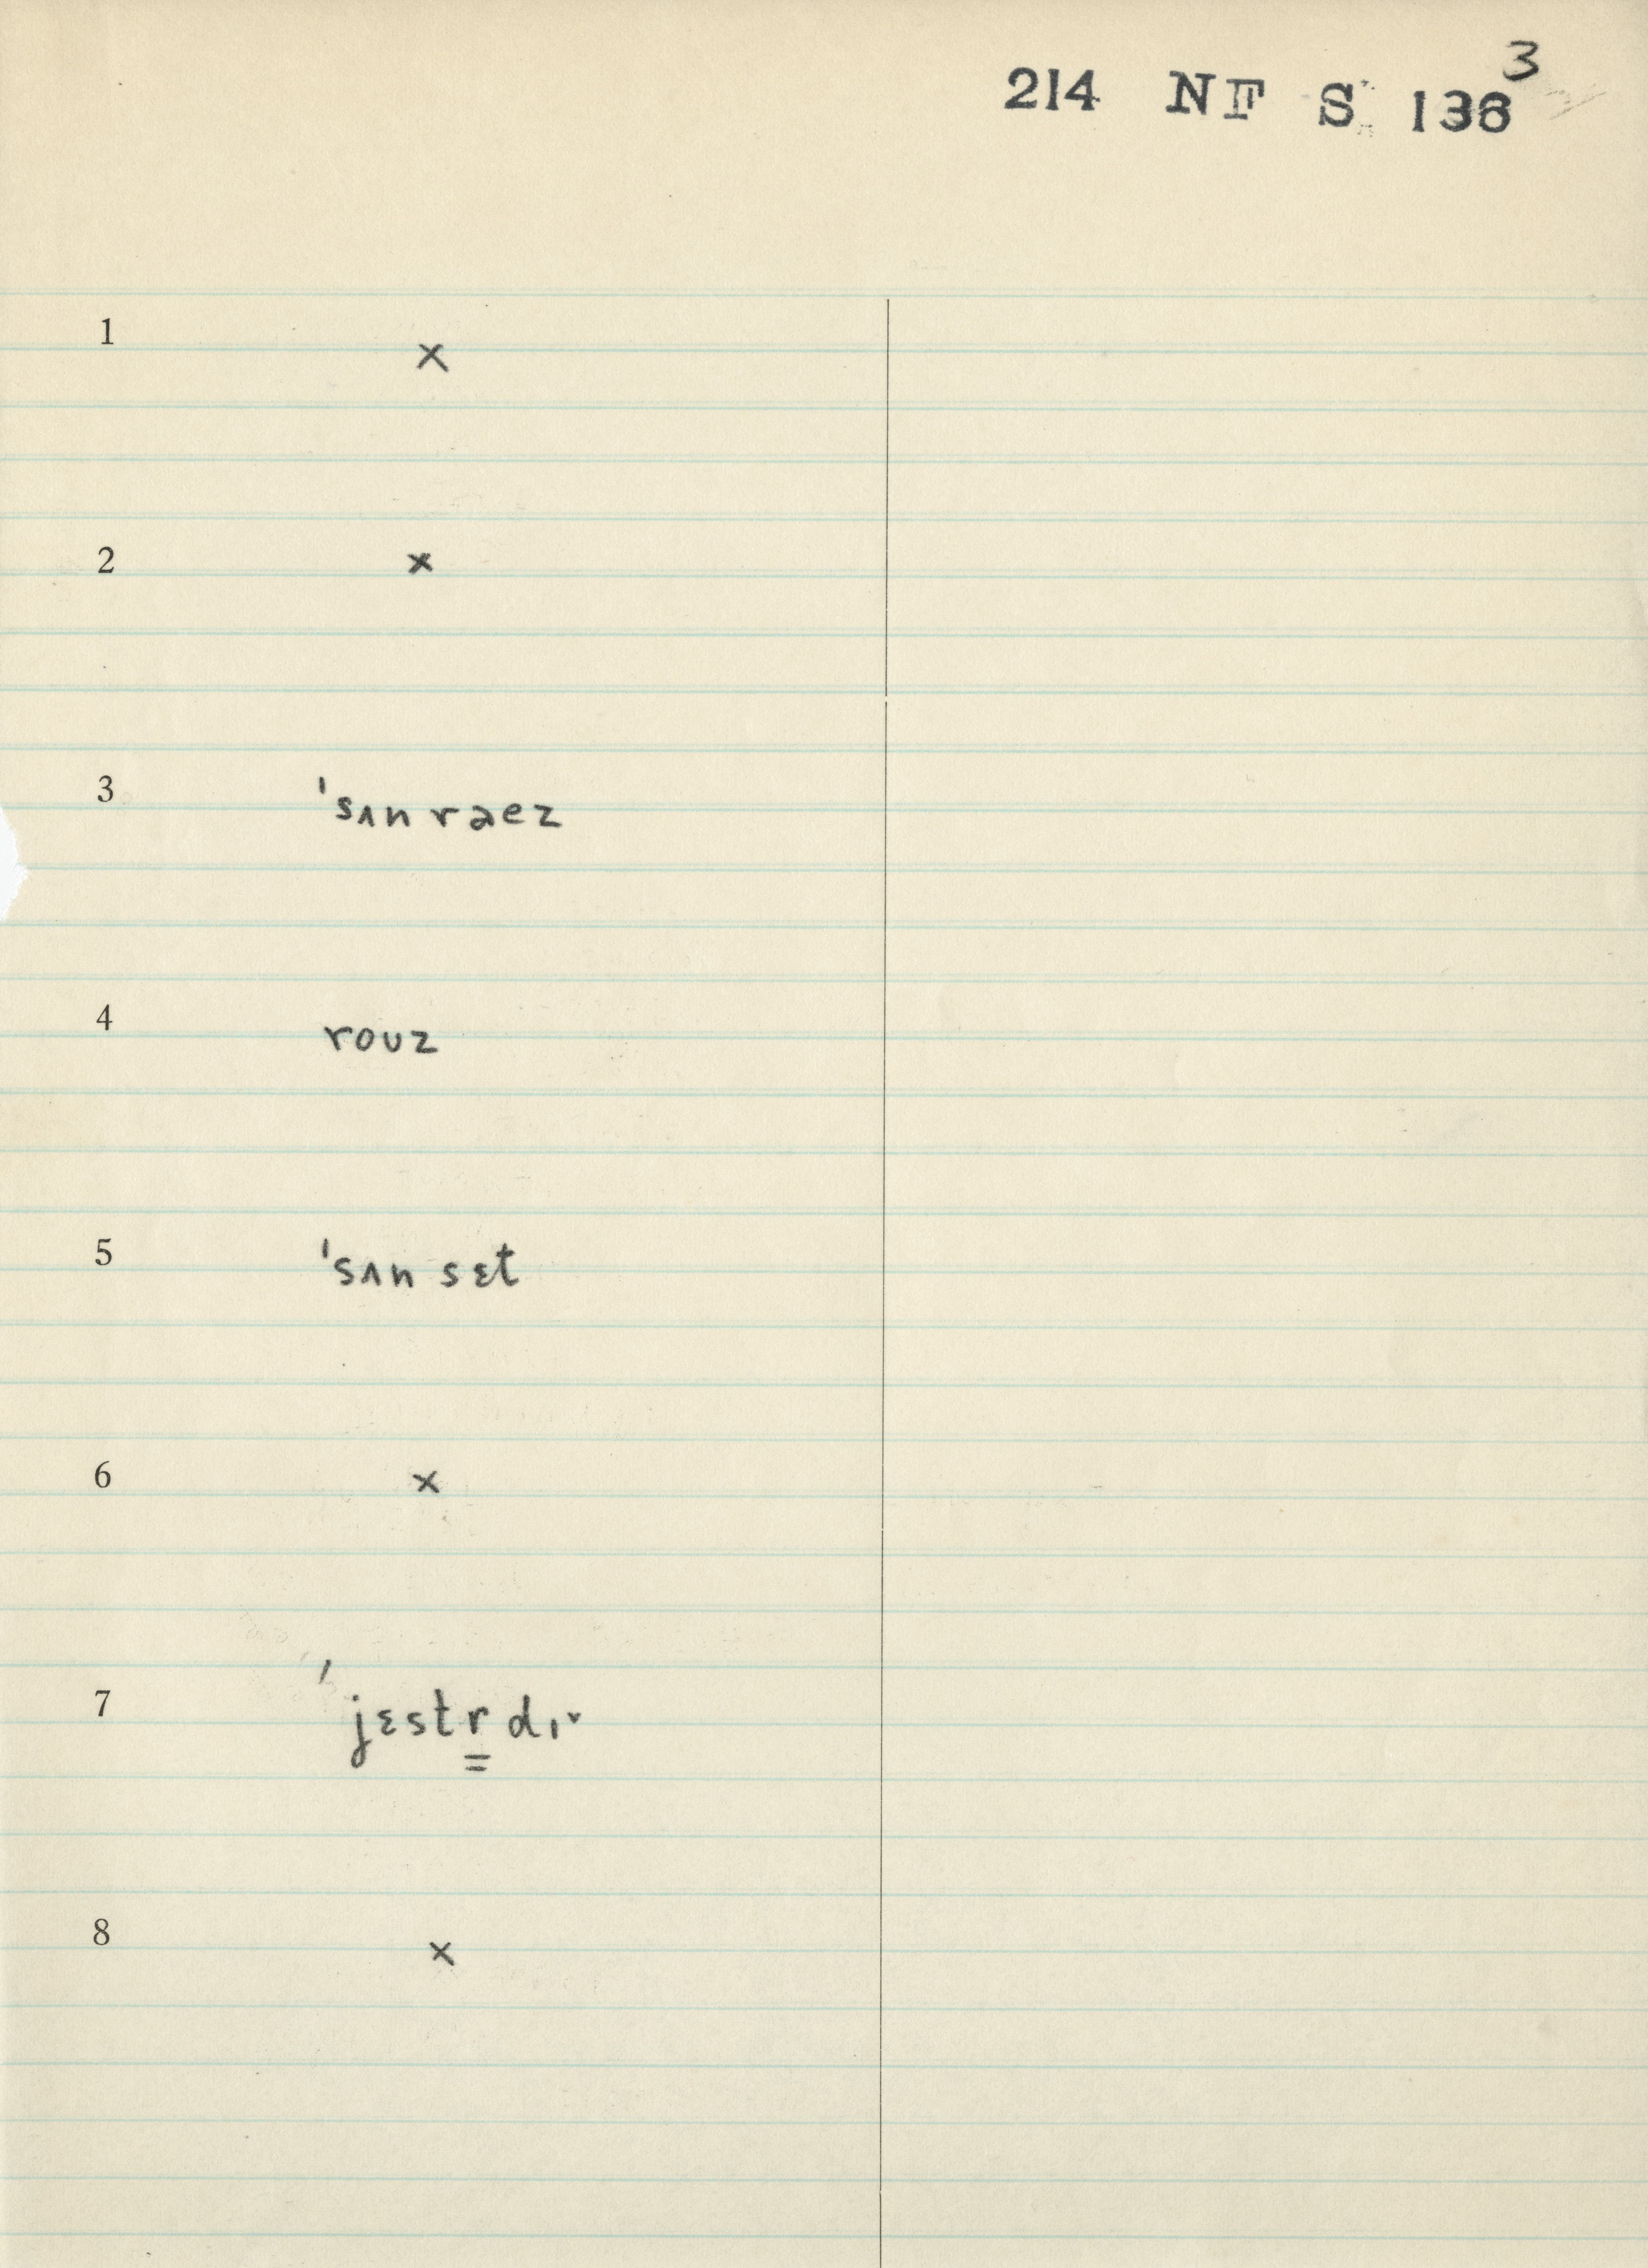 3
214 NF S 136
1 ×
2 ×
3 ˈsʌn raez
4 rouz
5 ˈsʌn sɛt
6 ×
7 ˈjɛstr̳ dɪ˅
8 ×